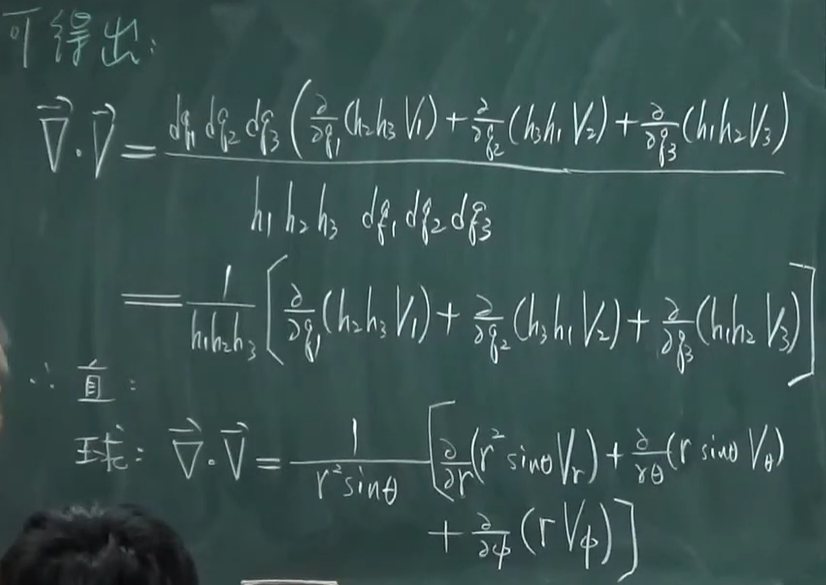 可得出:
$\vec{\nabla}\cdot\vec{V} = \frac{dq_1 dq_2 dq_3 \left( \frac{\partial}{\partial q_1}(h_2 h_3 V_1) + \frac{\partial}{\partial q_2}(h_3 h_1 V_2) + \frac{\partial}{\partial q_3}(h_1 h_2 V_3) \right)}{h_1 h_2 h_3 \, dq_1 dq_2 dq_3}$
$= \frac{1}{h_1 h_2 h_3} \left[ \frac{\partial}{\partial q_1}(h_2 h_3 V_1) + \frac{\partial}{\partial q_2}(h_3 h_1 V_2) + \frac{\partial}{\partial q_3}(h_1 h_2 V_3) \right]$
∴ 直:
球: $\vec{\nabla}\cdot\vec{V} = \frac{1}{r^2 \sin\theta} \left[ \frac{\partial}{\partial r}(r^2 \sin\theta V_r) + \frac{\partial}{\partial \theta}(r \sin\theta V_\theta) \right.$
$\left. + \frac{\partial}{\partial \phi}(r V_\phi) \right]$